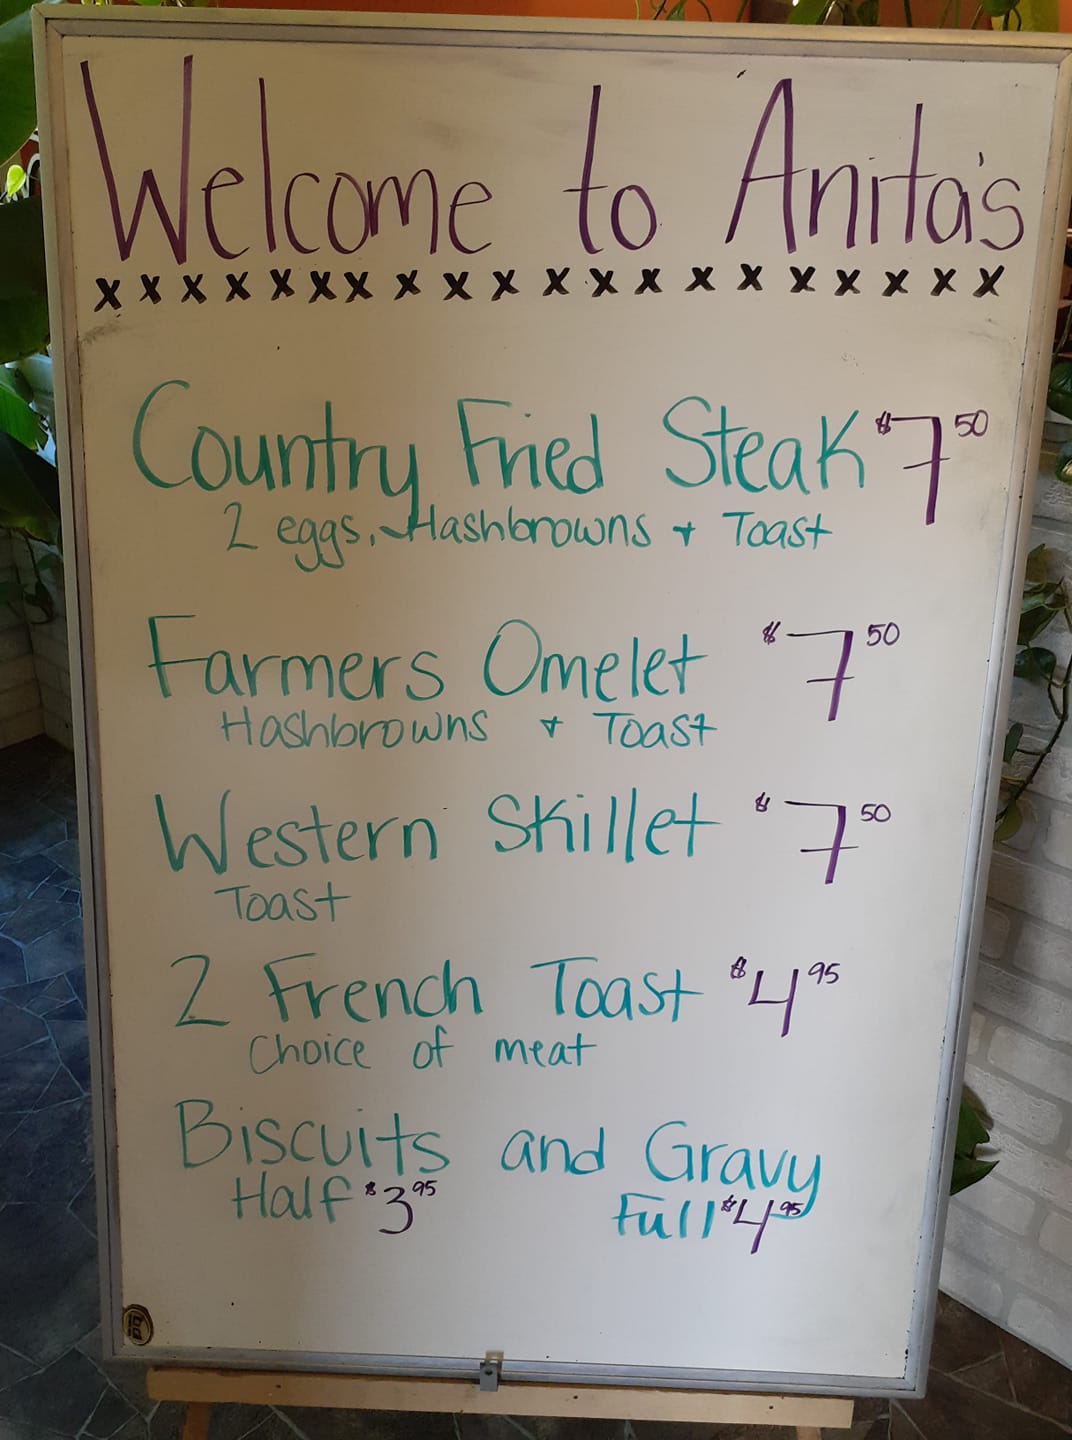 Welcome to Anita's
x x x x x x x x x x x x x x x x x x x x
Country Fried Steak $7 50
2 eggs, Hashbrowns + Toast
Farmers Omelet $7 50
Hashbrowns + Toast
Western Skillet $7 50
Toast
2 French Toast $4 95
Choice of meat
Biscuits and Gravy
Half $3 95 Full $4 95